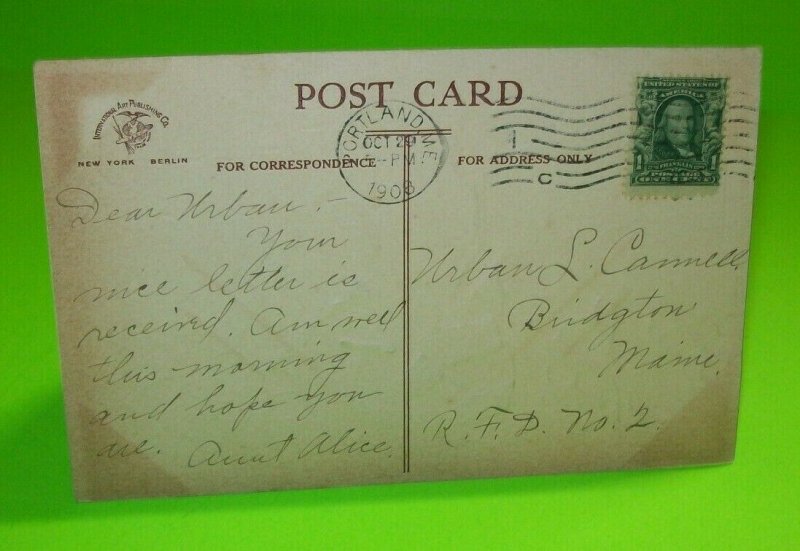 POST CARD
INTERNATIONAL ART PUBLISHING CO.
NEW YORK BERLIN
FOR CORRESPONDENCE
FOR ADDRESS ONLY
PORTLAND, ME.
OCT 29
PM
1908
1
C
UNITED STATES OF
AMERICA
FRANKLIN
1 1
POSTAGE
ONE CENT
Dear Urban,-
Your
nice letter is
received. Am well
this morning
and hope you
are. Aunt Alice.
Urban L. Cannell.
Bridgton
Maine.
R. F. D. No. 2.